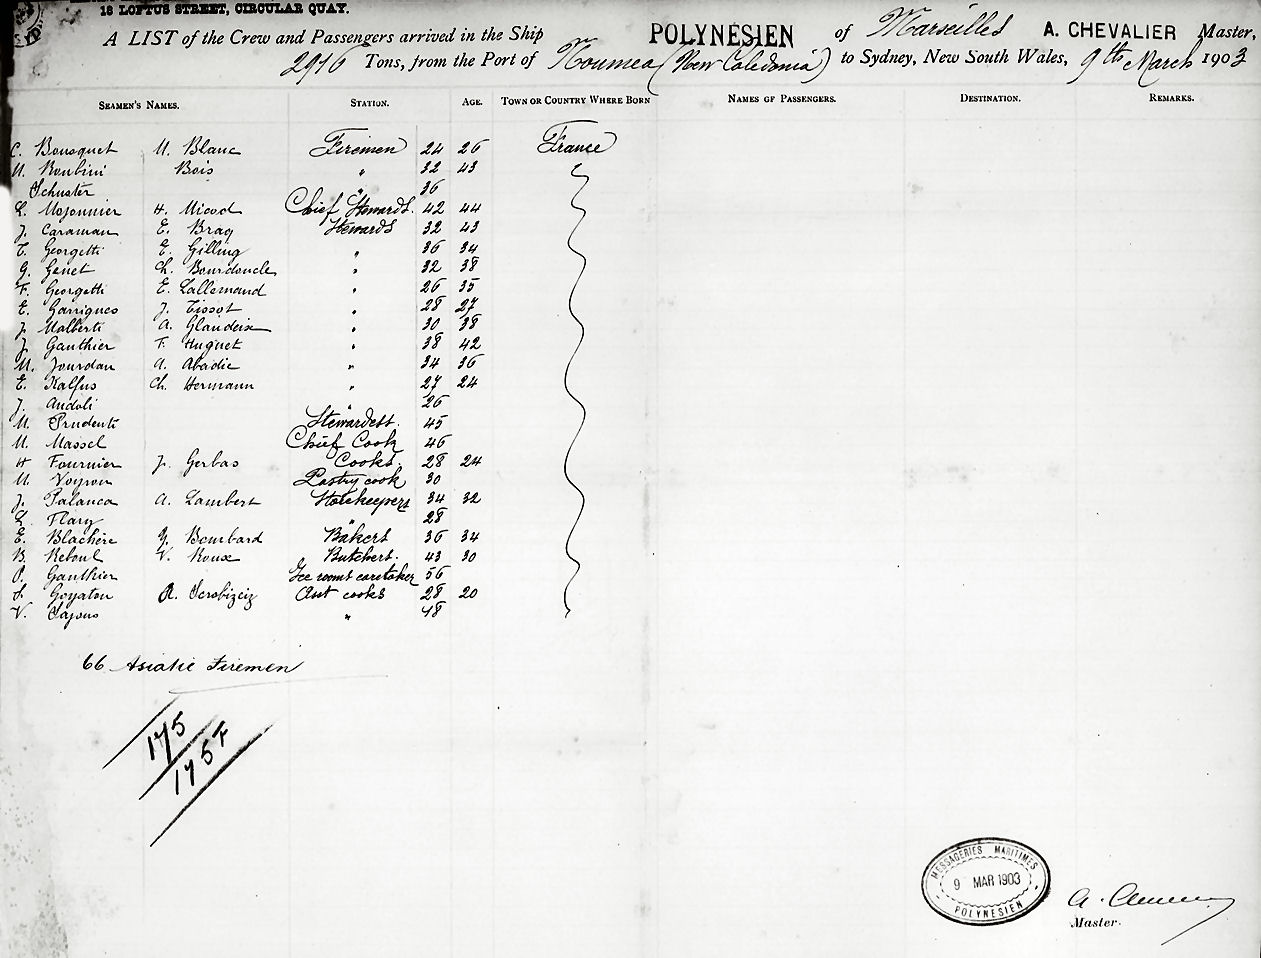 18 LOFTUS STREET, CIRCULAR QUAY.
A LIST of the Crew and Passengers arrived in the Ship POLYNÉSIEN of Marseilles A. CHEVALIER Master,
2976 Tons, from the Port of Noumea (New Caledonia) to Sydney, New South Wales, 9th March 1903
SEAMEN'S NAMES. STATION. AGE. TOWN OR COUNTRY WHERE BORN NAMES OF PASSENGERS. DESTINATION. REMARKS.
C. Bousquet M. Blanc Firemen 24 26 France
M. Roubini Bois " 32 43
Schuster " 36
L. Mojonnier H. Micod Chief Stewards. 42 44
J. Caraman E. Braq Stewards 32 43
T. Georgetti E. Gilling " 36 34
G. Genet L. Bourdoncle " 32 38
F. Georgetti E. Lallemand " 26 35
E. Garrigues J. Tissot " 28 27
J. Malberti A. " 30 38
J. Gauthier F. Huguet " 38 42
M. Jourdan A. Abadie " 34 36
E. Kalfus Ch. Hermann " 27 24
J. Andoli " 26
M. Prudenti Stewardess. 45
M. Massel Chief Cook 46
H Fournier J. Gerbas Cooks. 28 24
M. Voyron Pastry cook 30
J. Palanca A. Lambert Storekeepers 34 32
L. Flary " 28
E. Blachère G. Bombard Bakers 36 34
B. Reboul V. Roux Butchers. 43 30
P. Gauthier Ice rooms caretaker 56
J. Goyaton R. Ast cooks 28 20
V. Sajous " 48
66 Asiatic Firemen
175
175 F
MESSAGERIES MARITIMES
9 MAR 1903
POLYNESIEN
Master.